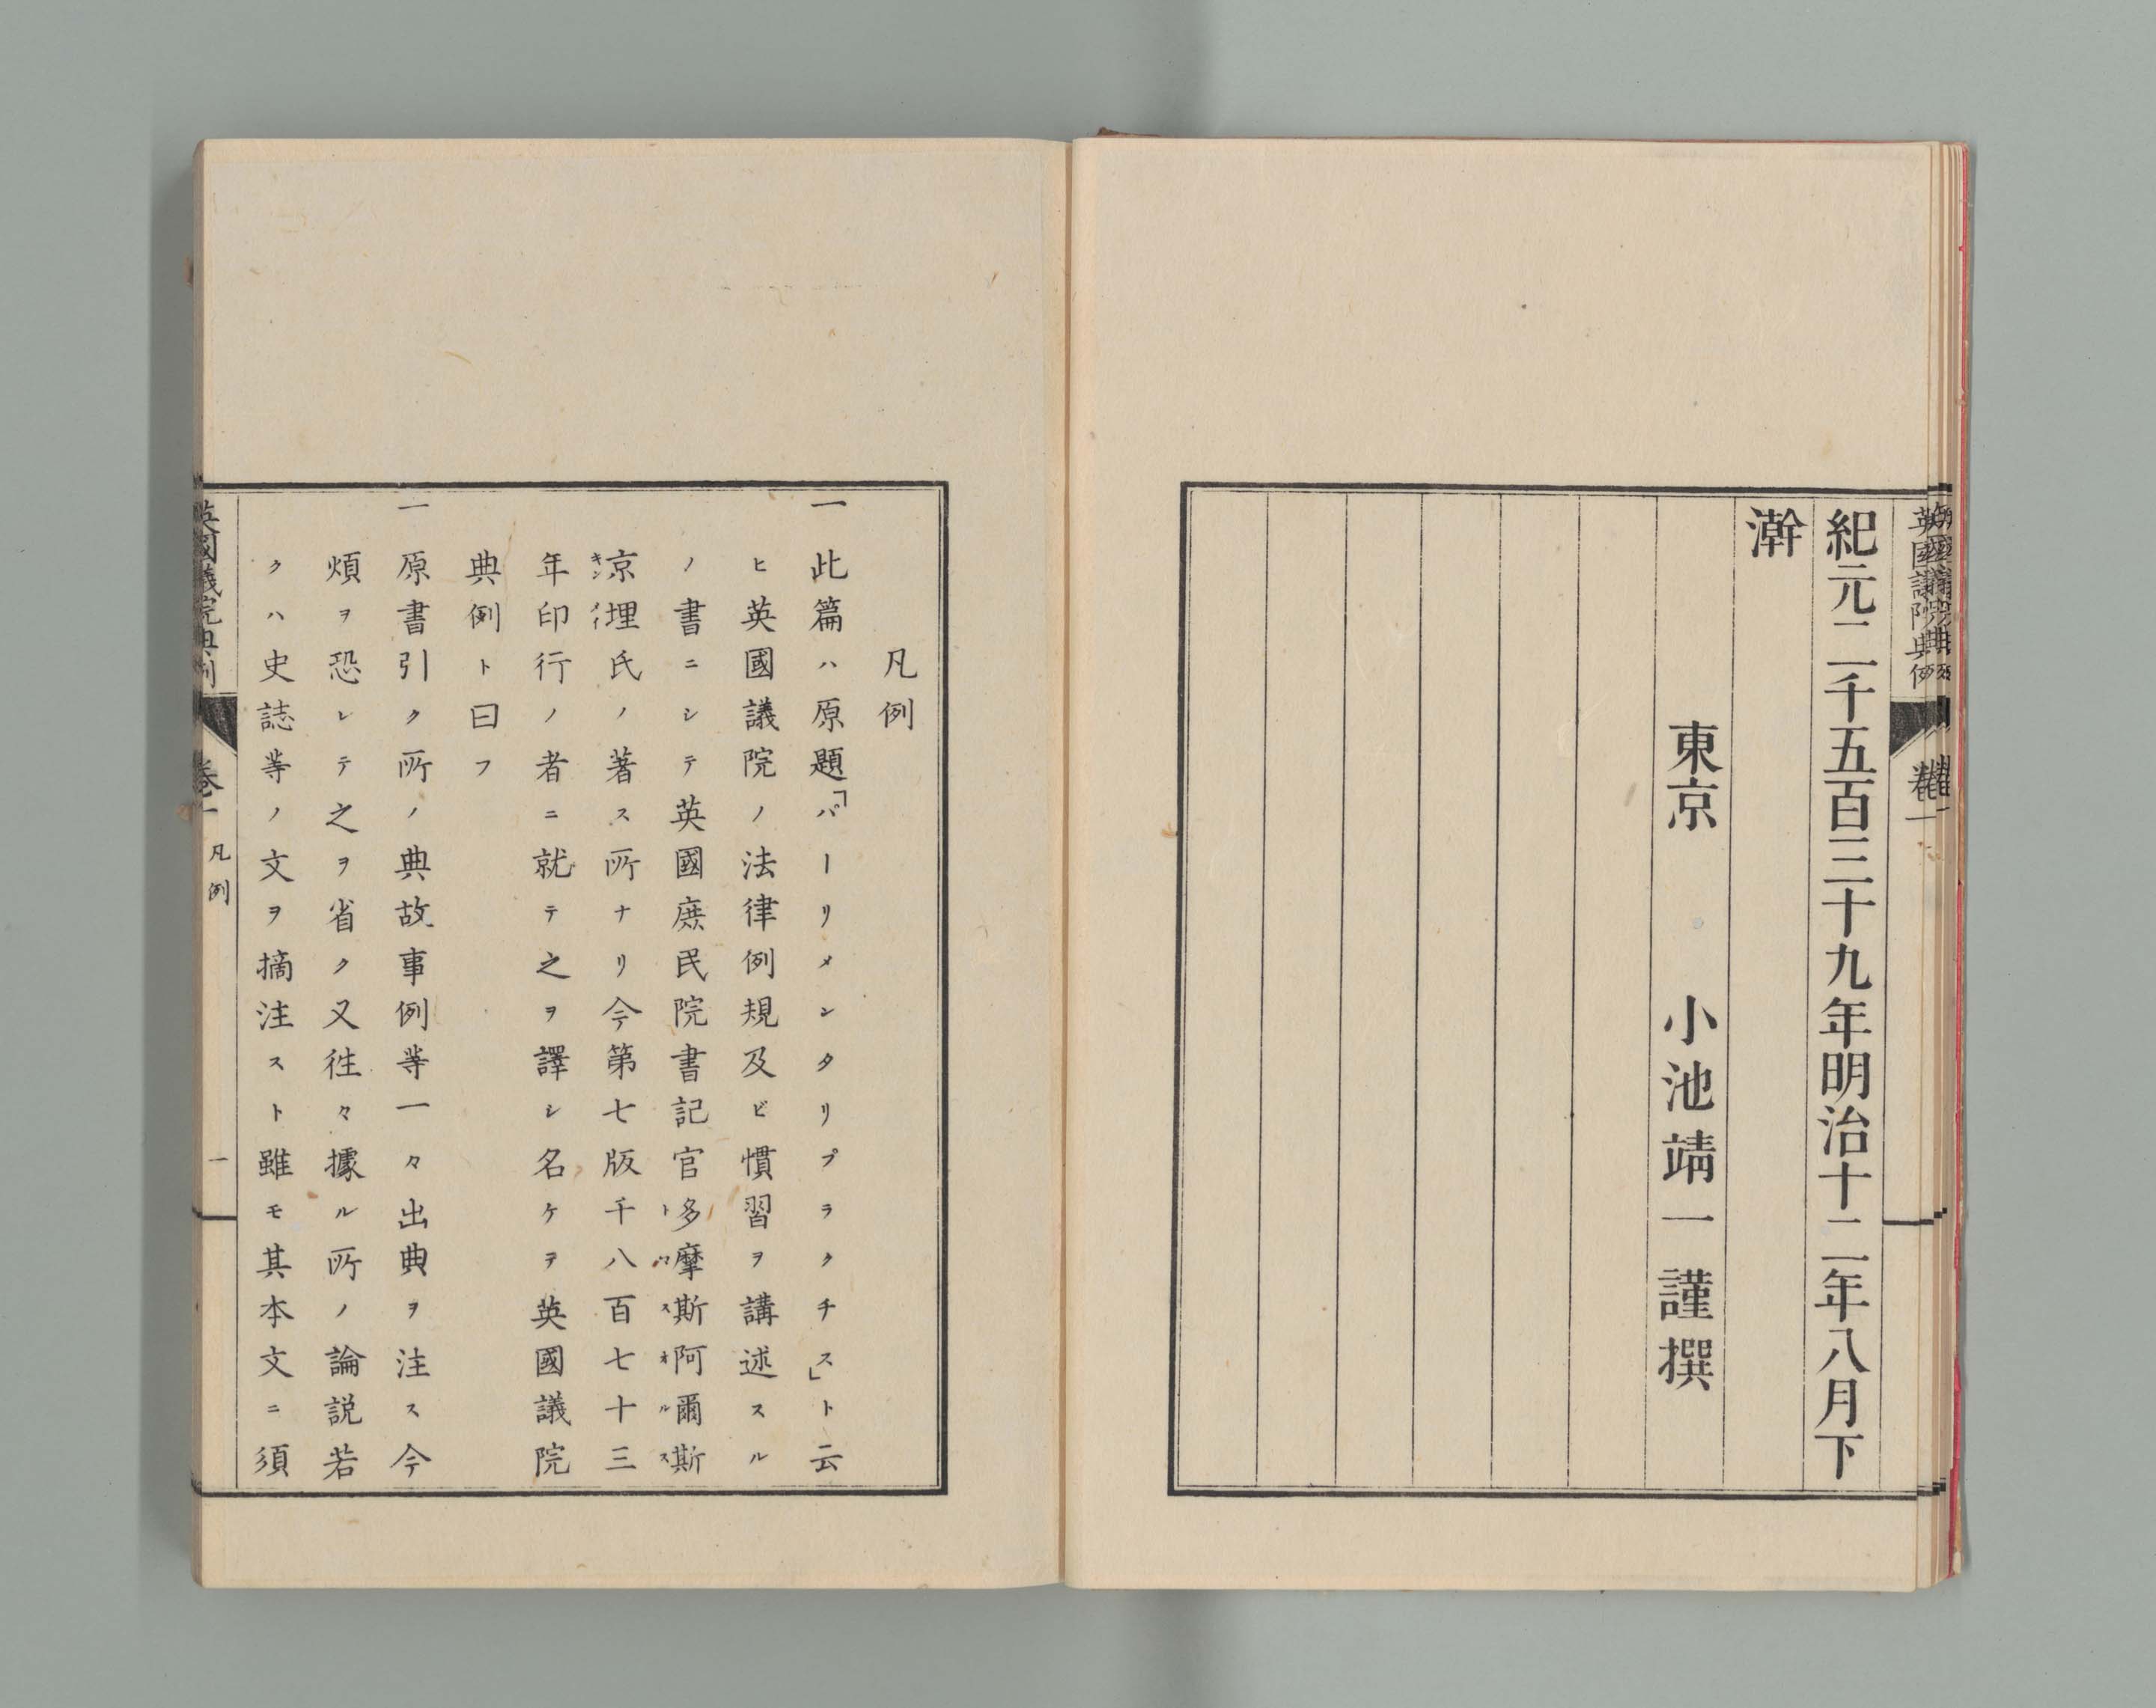 英國議院典例
卷一
紀元二千五百三十九年明治十二年八月下
澣
東京　小池靖一謹撰
凡例
一此篇ハ原題「バーリメンタリプラクチス」ト云
ヒ英國議院ノ法律例規及ビ慣習ヲ講述スル
ノ書ニシテ英國庶民院書記官多摩斯阿爾斯
トマスオルスス
京埋氏ノ著ス所ナリ今第七版千八百七十三
年印行ノ者ニ就テ之ヲ譯シ名ケテ英國議院
典例ト曰フ
一原書引ク所ノ典故事例等一々出典ヲ注ス今
煩ヲ恐レテ之ヲ省ク又徃々據ル所ノ論説若
クハ史誌等ノ文ヲ摘注スト雖モ其本文ニ須
英國議院典例
卷一
凡例
一